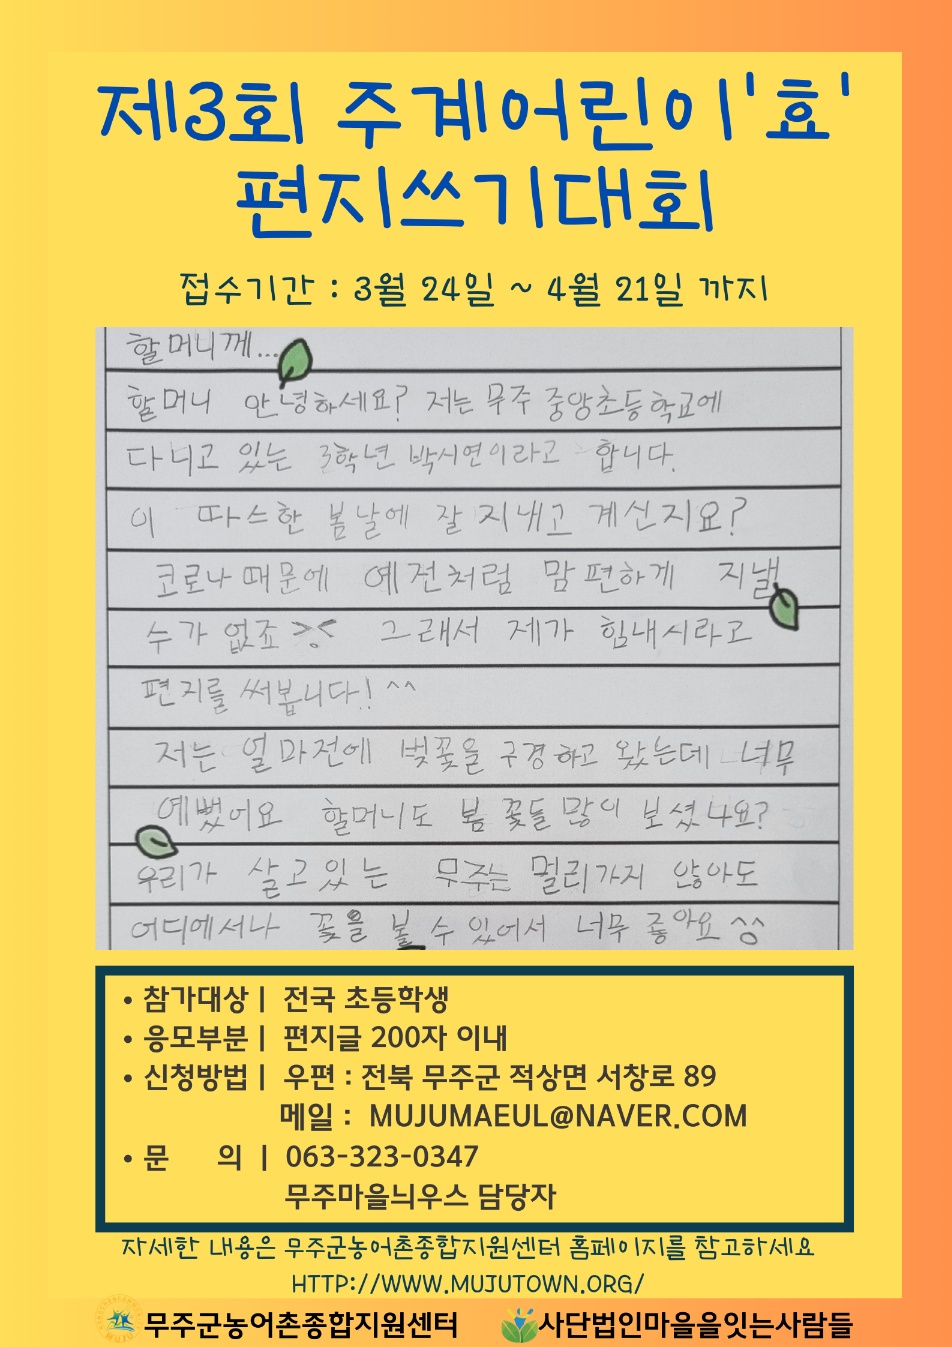 제3회 주계어린이'효'
편지쓰기대회
접수기간 : 3월 24일 ~ 4월 21일 까지
할머니께...
할머니 안녕하세요? 저는 무주 중앙초등학교에
다니고 있는 3학년 박시연이라고 합니다.
이 따스한 봄날에 잘 지내고 계신지요?
코로나 때문에 예전처럼 맘 편하게 지낼
수가 없죠 >.< 그래서 제가 힘내시라고
편지를 써봅니다! ^^
저는 얼마전에 벚꽃을 구경하고 왔는데 너무
예뻤어요 할머니도 봄 꽃들 많이 보셨나요?
우리가 살고있는 무주는 멀리가지 않아도
어디에서나 꽃을 볼 수 있어서 너무 좋아요 ^^
• 참가대상 | 전국 초등학생
• 응모부분 | 편지글 200자 이내
• 신청방법 | 우편 : 전북 무주군 적상면 서창로 89
메일 : MUJUMAEUL@NAVER.COM
• 문 의 | 063-323-0347
무주마을늬우스 담당자
자세한 내용은 무주군농어촌종합지원센터 홈페이지를 참고하세요
HTTP://WWW.MUJUTOWN.ORG/
무주군농어촌종합지원센터 사단법인마을을잇는사람들